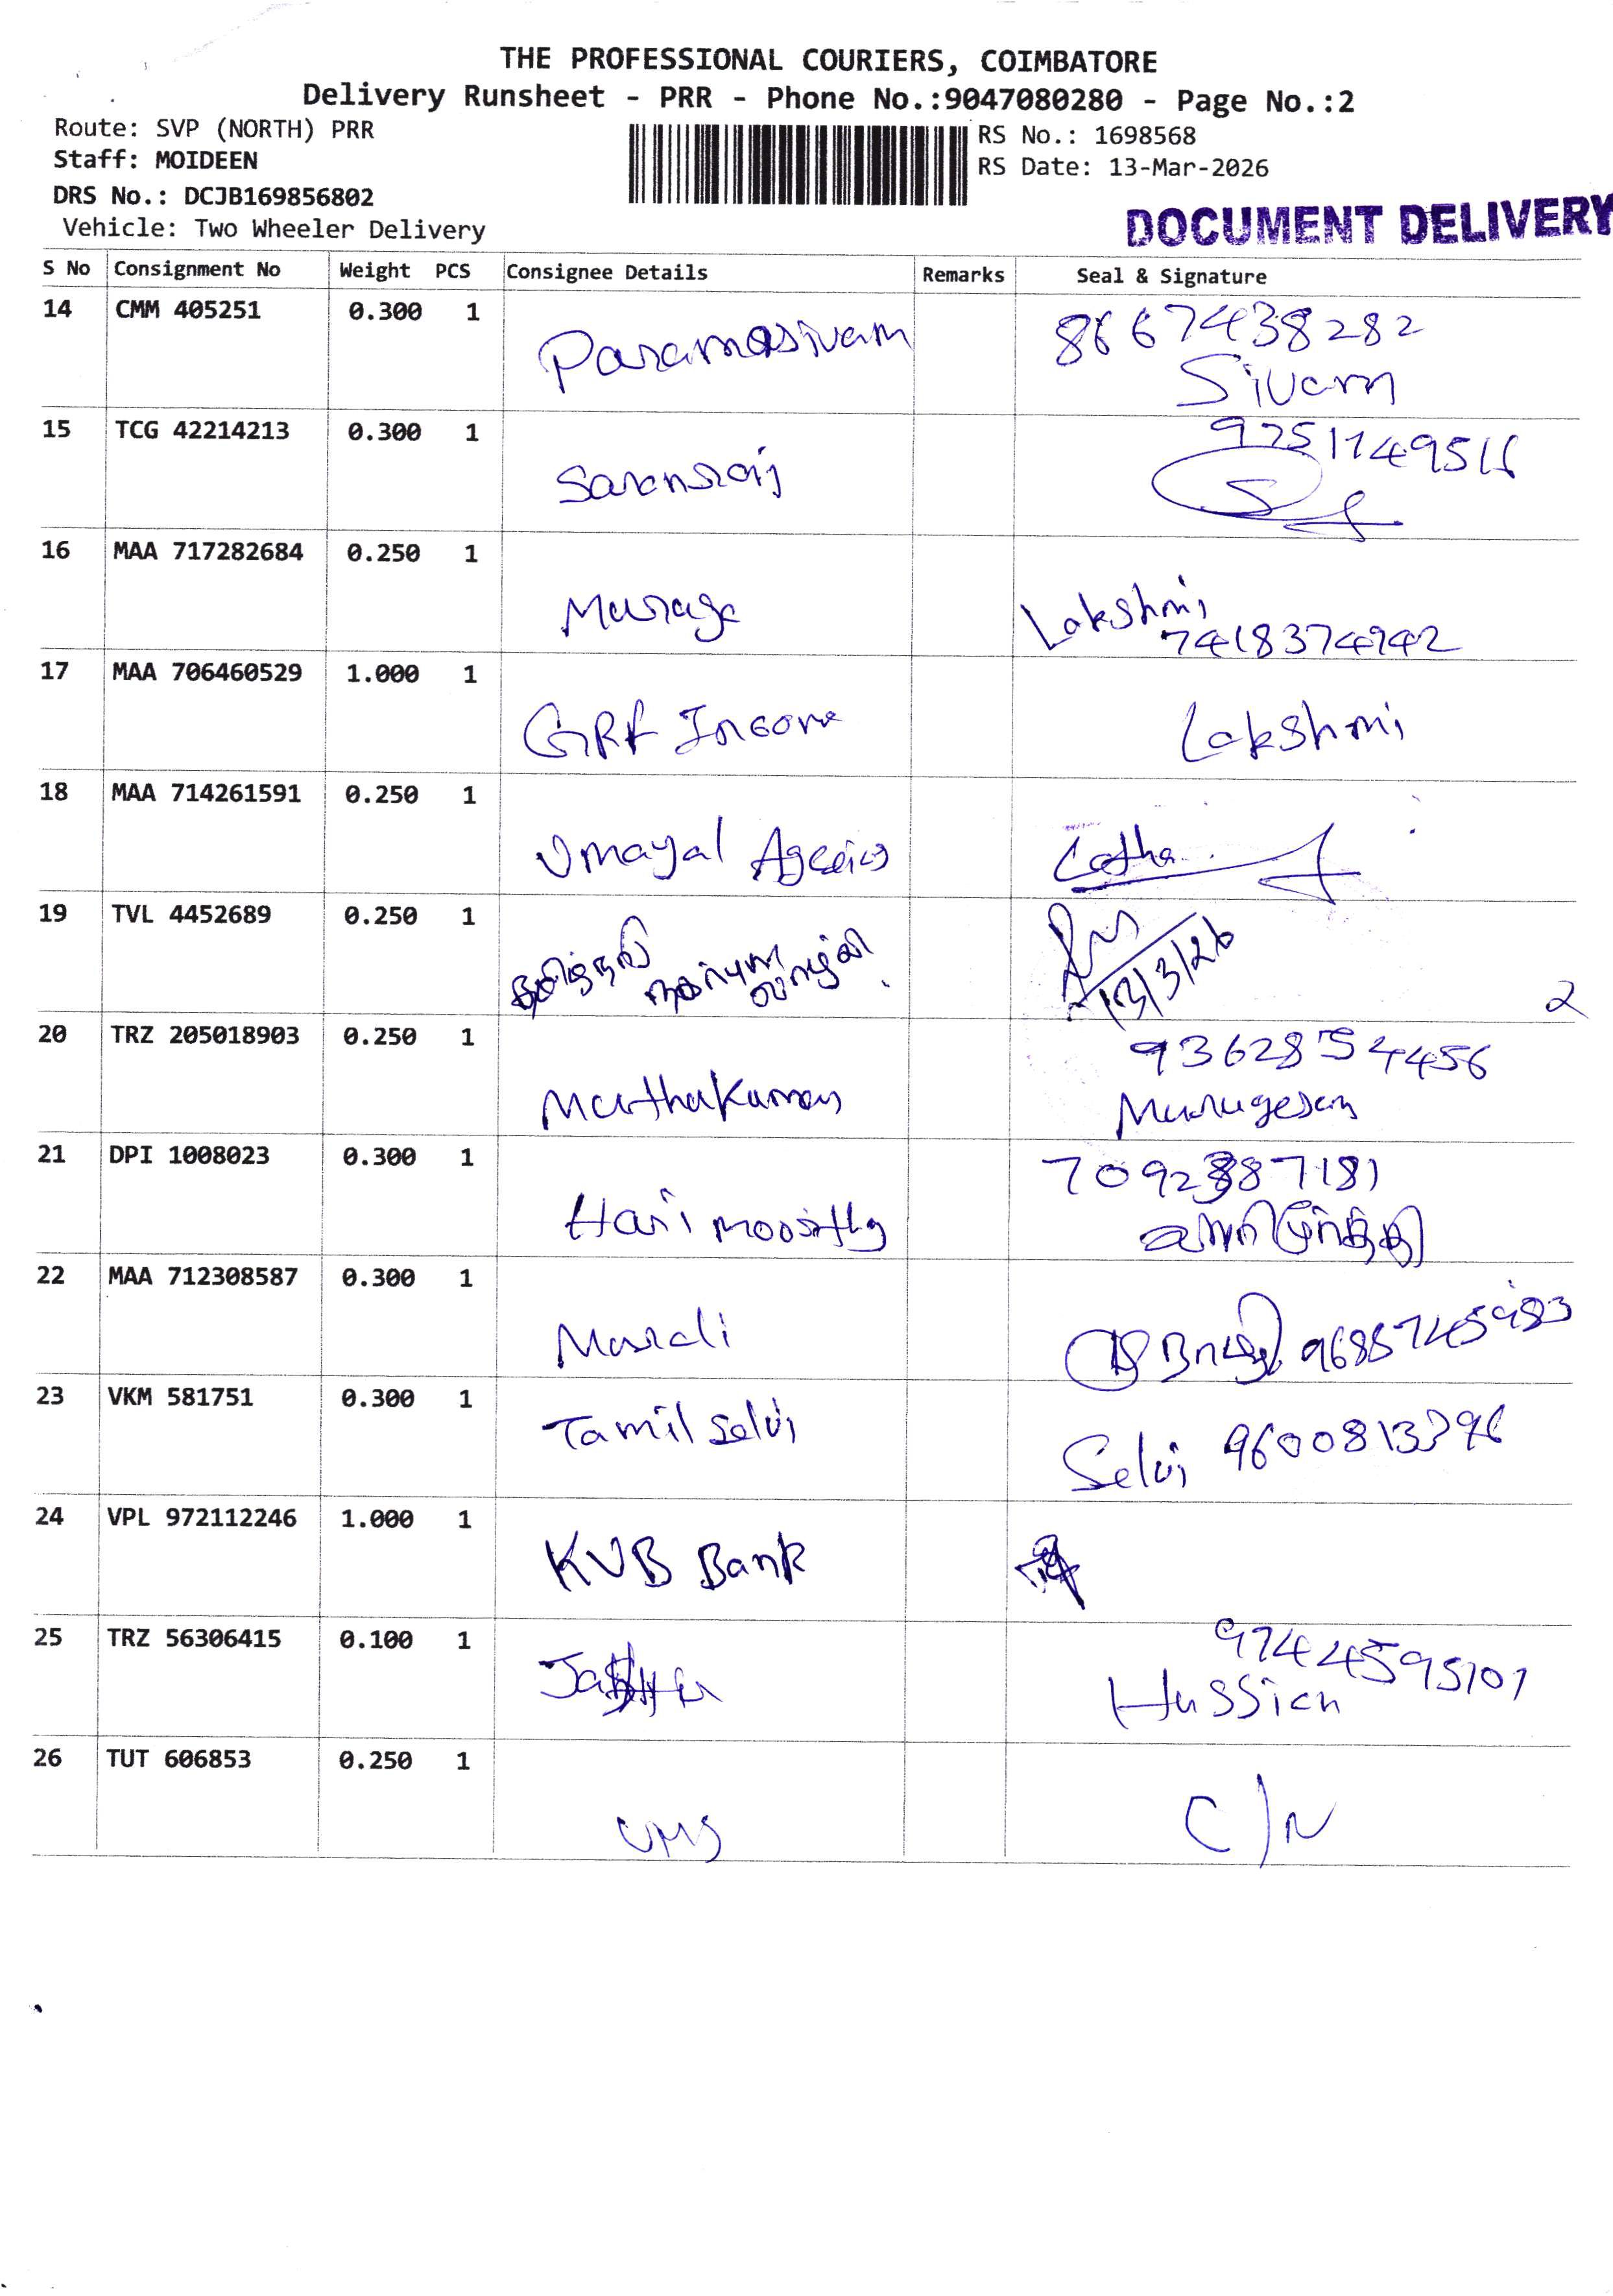 THE PROFESSIONAL COURIERS, COIMBATORE
Delivery Runsheet - PRR - Phone No.:9047080280 - Page No.:2
Route: SVP (NORTH) PRR
RS No.: 1698568
Staff: MOIDEEN
RS Date: 13-Mar-2026
DRS No.: DCJB169856802
Vehicle: Two Wheeler Delivery
DOCUMENT DELIVERY
S No Consignment No Weight PCS Consignee Details Remarks Seal & Signature
14 CMM 405251 0.300 1 Paramasivam 8667438282
Sivam
15 TCG 42214213 0.300 1 Saransraj
16 MAA 717282684 0.250 1 Muruga Lakshmi
7418374942
17 MAA 706460529 1.000 1 GRF Income Lakshmi
18 MAA 714261591 0.250 1 Umayal Latha
19 TVL 4452689 0.250 1 13/3/26
2
20 TRZ 205018903 0.250 1 9362854456
Muthakumar Murugesan
21 DPI 1008023 0.300 1 Hari moorthy
22 MAA 712308587 0.300 1 Murali
23 VKM 581751 0.300 1 Tamil Selvi Selvi
24 VPL 972112246 1.000 1 KVB Bank
25 TRZ 56306415 0.100 1 9744595101
Hussien
26 TUT 606853 0.250 1 VMS C/N